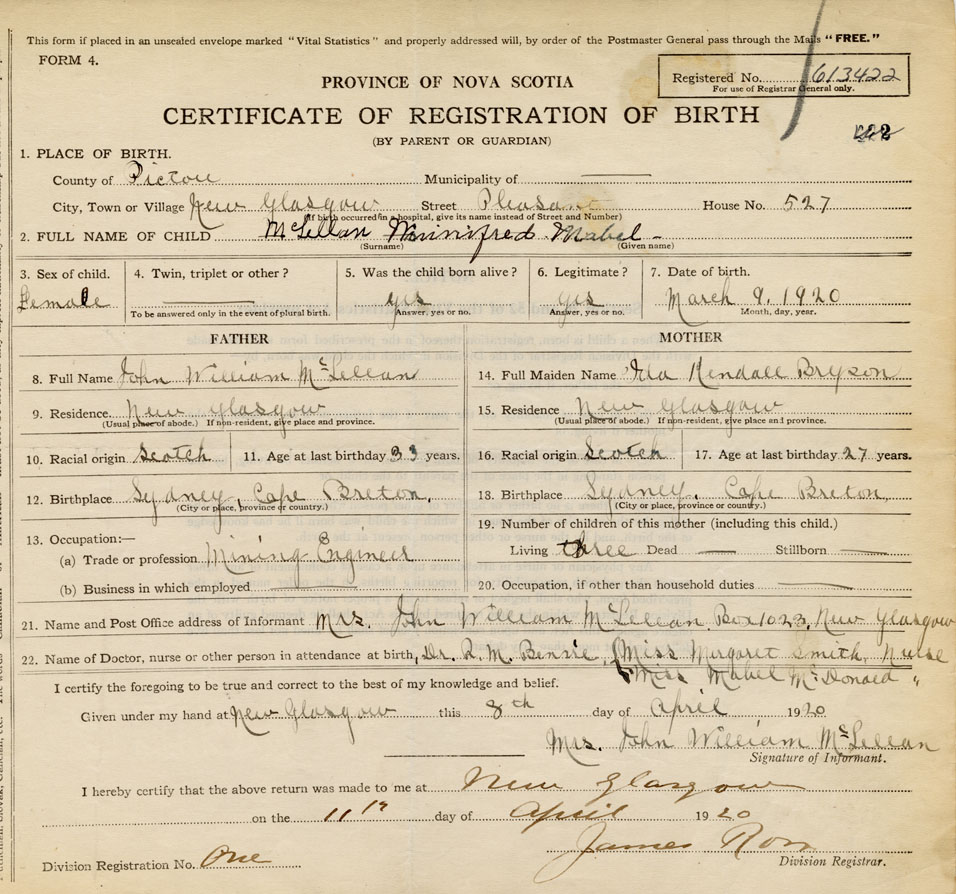 This form if placed in an unsealed envelope marked "Vital Statistics" and properly addressed will, by order of the Postmaster General pass through the Mails "FREE."
FORM 4.
Registered No. 613422
For use of Registrar General only.
PROVINCE OF NOVA SCOTIA
CERTIFICATE OF REGISTRATION OF BIRTH
(BY PARENT OR GUARDIAN)
1. PLACE OF BIRTH.
County of Pictou Municipality of —
City, Town or Village New Glasgow Street Pleasant House No. 527
(If birth occurred in a hospital, give its name instead of Street and Number)
2. FULL NAME OF CHILD McLellan Winnifred Mabel -
(Surname) (Given name)
3. Sex of child. 4. Twin, triplet or other? 5. Was the child born alive? 6. Legitimate? 7. Date of birth.
Female — yes yes March 9, 1920
To be answered only in the event of plural birth. Answer, yes or no. Answer, yes or no. Month, day, year.
FATHER MOTHER
8. Full Name John William McLellan 14. Full Maiden Name Ida Kendall Bryson
9. Residence. New Glasgow 15. Residence New Glasgow
(Usual place of abode.) If non-resident, give place and province. (Usual place of abode.) If non-resident, give place and province.
10. Racial origin Scotch 11. Age at last birthday 33 years. 16. Racial origin Scotch 17. Age at last birthday 27 years.
12. Birthplace Sydney, Cape Breton. 18. Birthplace Sydney, Cape Breton.
(City or place, province or country.) (City or place, province or country.)
13. Occupation:— 19. Number of children of this mother (including this child.)
(a) Trade or profession Mining Engineer Living three Dead — Stillborn —
(b) Business in which employed — 20. Occupation, if other than household duties —
21. Name and Post Office address of Informant Mrs. John William McLellan Box 1023, New Glasgow
22. Name of Doctor, nurse or other person in attendance at birth, Dr. R. M. Benvie, Miss Margaret Smith, Nurse
Miss Mabel McDonald "
I certify the foregoing to be true and correct to the best of my knowledge and belief.
Given under my hand at New Glasgow this 8th day of April 1920
Mrs. John William McLellan
Signature of Informant.
I hereby certify that the above return was made to me at New Glasgow
on the 11th day of April 1920
James Ross
Division Registration No. One Division Registrar.